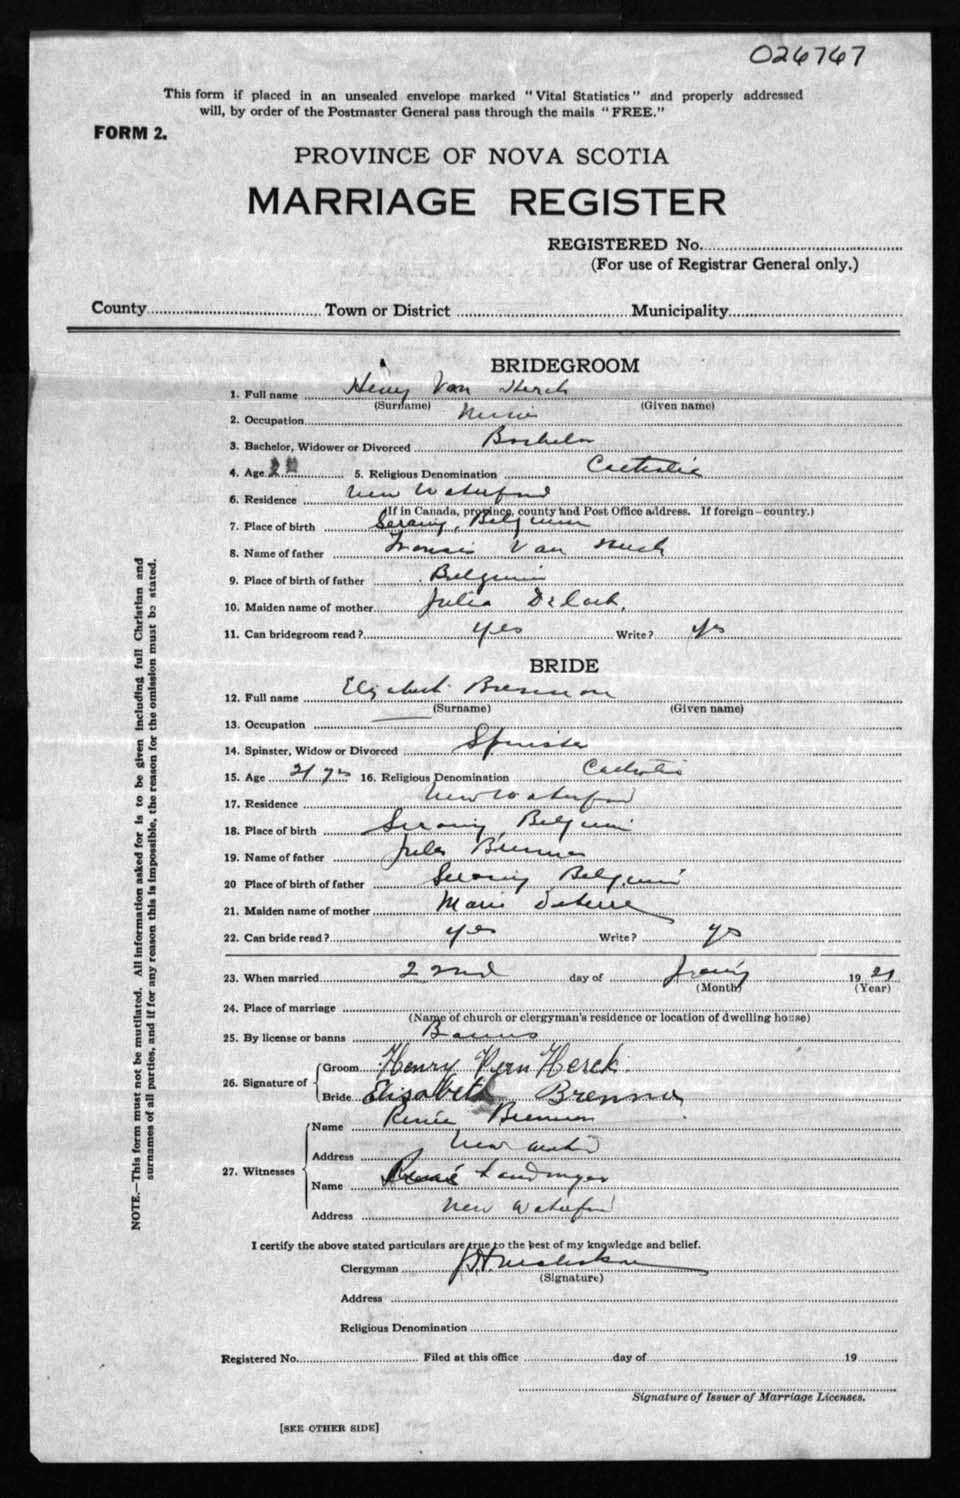 026767
This form if placed in an unsealed envelope marked "Vital Statistics" and properly addressed
will, by order of the Postmaster General pass through the mails "FREE."
FORM 2.
PROVINCE OF NOVA SCOTIA
MARRIAGE REGISTER
REGISTERED No.
(For use of Registrar General only.)
County Town or District Municipality
BRIDEGROOM
1. Full name Henry Van Herck
(Surname) (Given name)
2. Occupation
3. Bachelor, Widower or Divorced Bachelor
4. Age 5. Religious Denomination Catholic
6. Residence New Waterford
(If in Canada, province, county and Post Office address. If foreign-country.)
7. Place of birth Seraing, Belgium
8. Name of father Francis Van Herck
9. Place of birth of father Belgium
10. Maiden name of mother Julia
11. Can bridegroom read? yes Write? yes
BRIDE
12. Full name Elizabeth Brennon
(Surname) (Given name)
13. Occupation
14. Spinster, Widow or Divorced Spinster
15. Age 21 yrs 16. Religious Denomination Catholic
17. Residence New Waterford
18. Place of birth Seraing, Belgium
19. Name of father Jules
20 Place of birth of father Seraing Belgium
21. Maiden name of mother Marie
22. Can bride read? yes Write? yes
23. When married 22nd day of 1921
(Month) (Year)
24. Place of marriage
(Name of church or clergyman's residence or location of dwelling house)
25. By license or banns Banns
26. Signature of Groom Henry Van Herck
Bride Elisabeth Brenna
27. Witnesses Name Renée
Address New
Name
Address New Waterford
I certify the above stated particulars are true to the best of my knowledge and belief.
Clergyman
(Signature)
Address
Religious Denomination
Registered No. Filed at this office day of 19
Signature of Issuer of Marriage Licenses.
[SEE OTHER SIDE]
NOTE.—This form must not be mutilated. All information asked for is to be given including full Christian and
surnames of all parties, and if for any reason this is impossible, the reason for the omission must be stated.